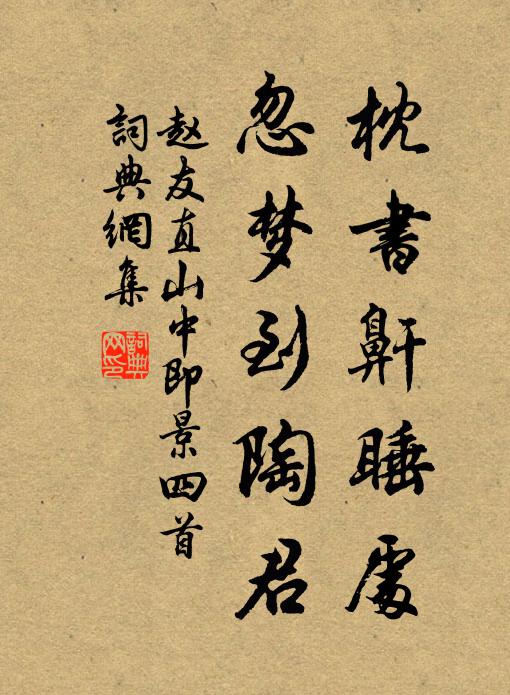 枕書鼾睡處
忽梦到陶君
赵友直山中即景四首
詞典網集
詞典网印